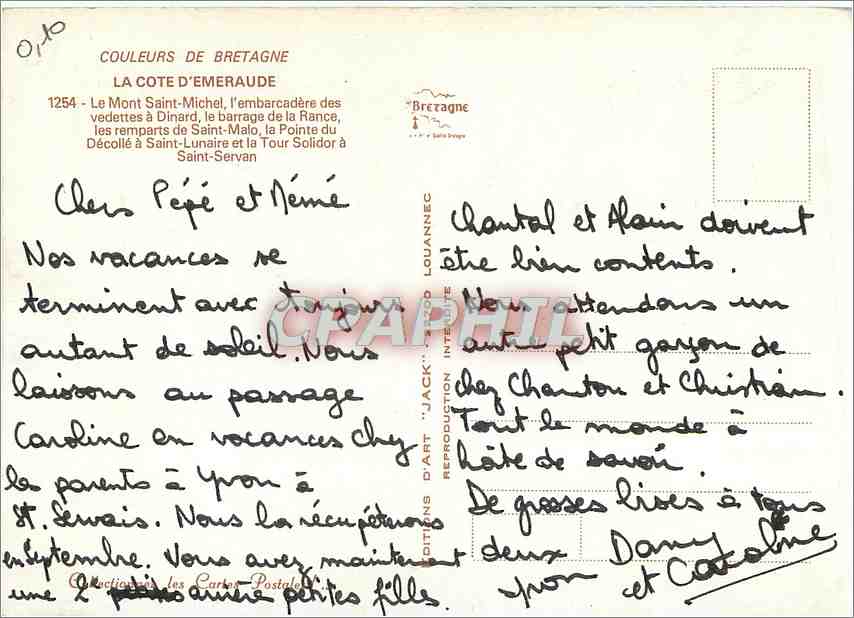 0,10
COULEURS DE BRETAGNE
LA COTE D'EMERAUDE
1254 - Le Mont Saint-Michel, l'embarcadère des
vedettes à Dinard, le barrage de la Rance,
les remparts de Saint-Malo, la Pointe du
Décollé à Saint-Lunaire et la Tour Solidor à
Saint-Servan
Bretagne
Chers Pépé et Mémé
Nos vacances se
terminent avec toujours
autant de soleil. Nous
laissons au passage
Caroline en vacances chez
les parents à Yvon à
St. Servais. Nous la récupèterons
en septembre. Vous avez maintenant
une 2 arrière petites filles.
EDITIONS D'ART "JACK" 22700 LOUANNEC
REPRODUCTION INTERDITE
Chantal et Alain doivent
être bien contents.
Nous attendons un
autre petit garçon de
chez Chantou et Christian.
Tout le monde à
hâte de savoir.
De grosses bises à tous
deux Dany
Yvon et Caroline
Collectionnez les Cartes Postales
CPAPHIL